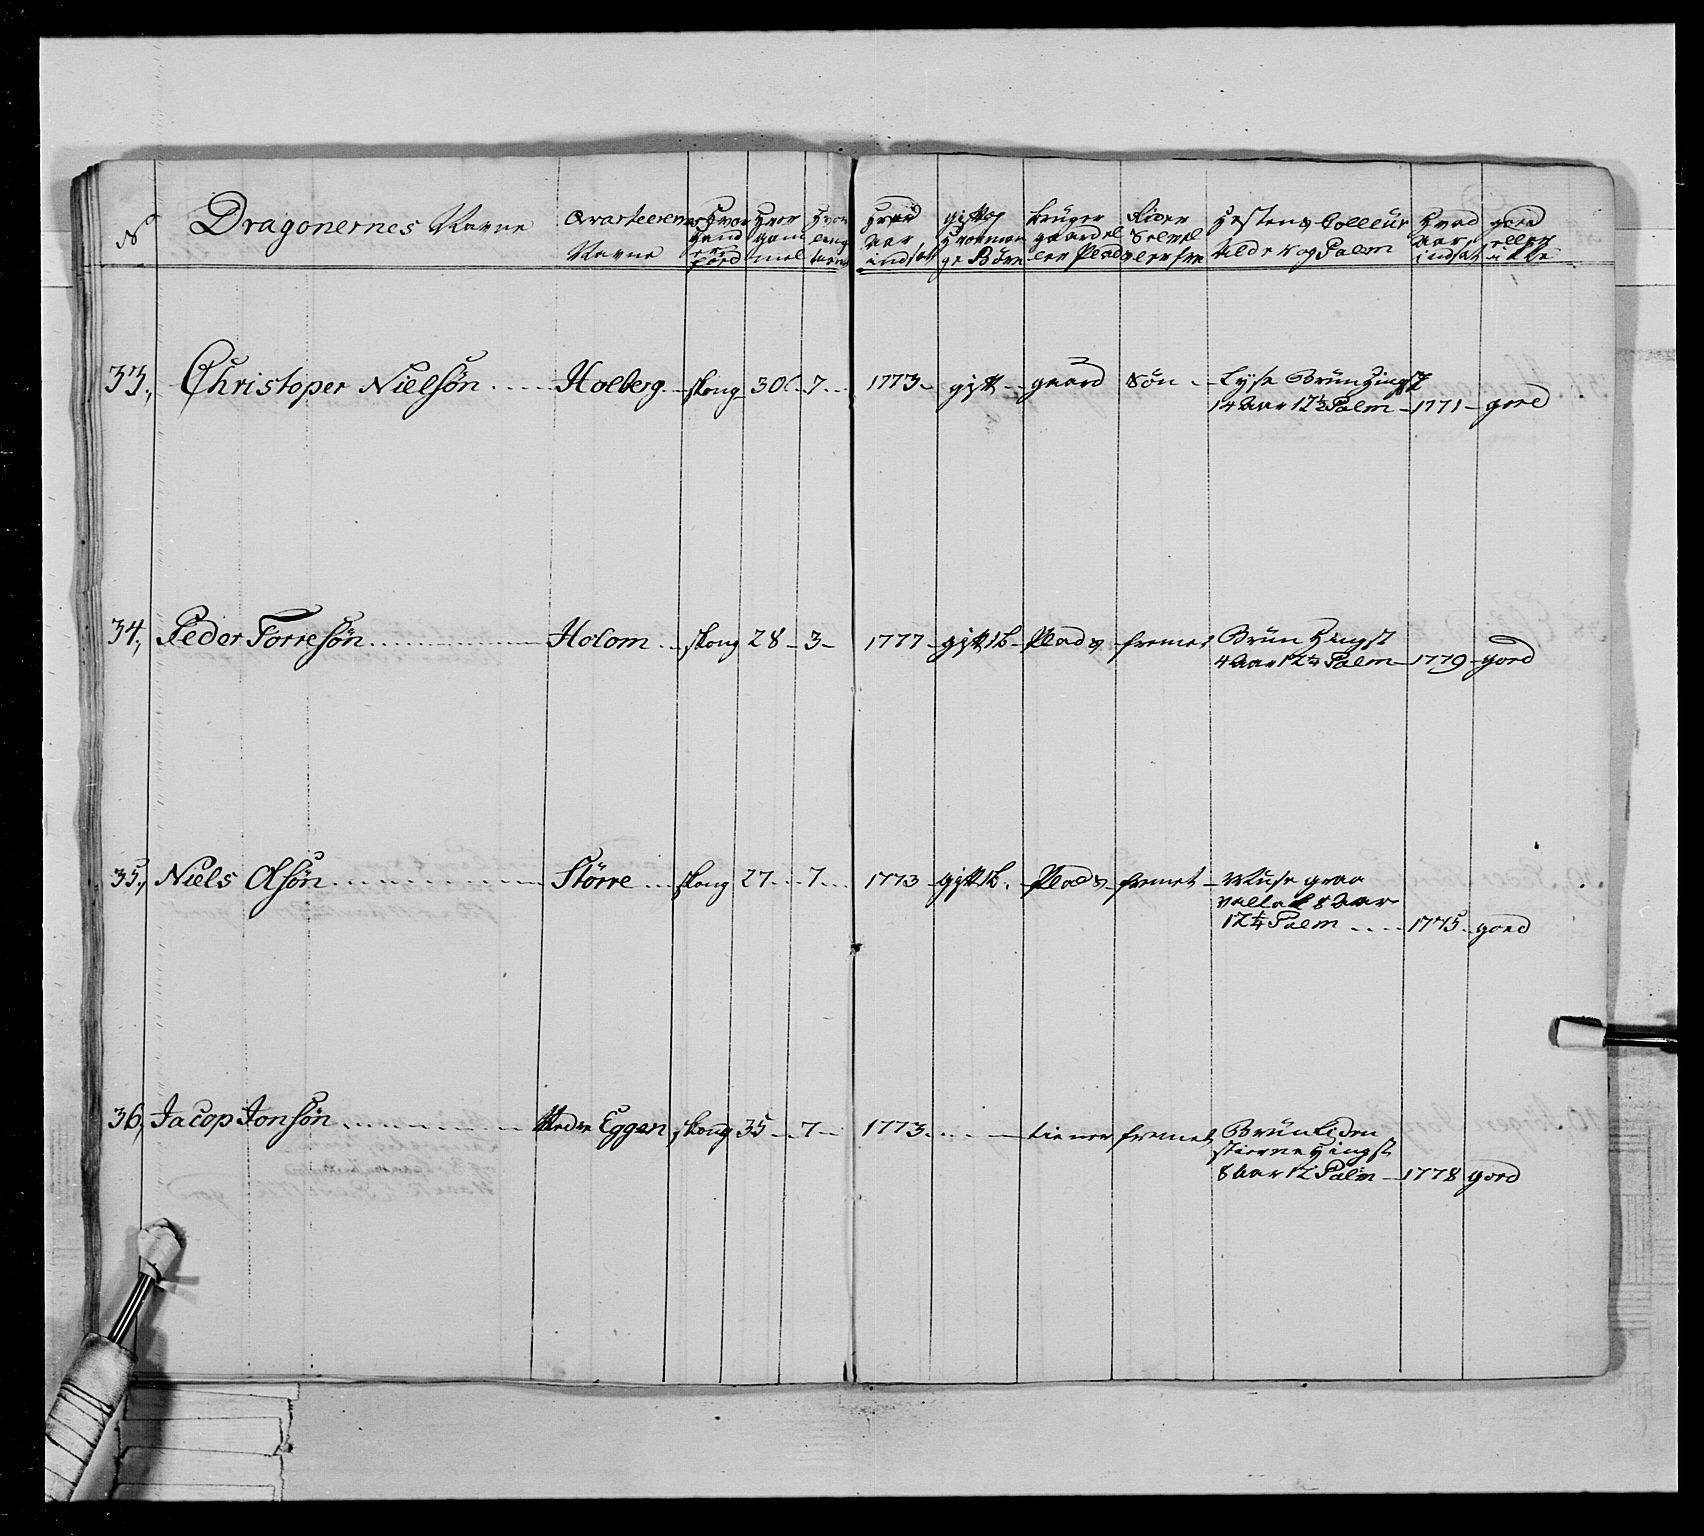 N Dragonernes Navne Qvarteerenes Navne Hvor gam mel Hvor lenge tient Hvad Aar indsatt gift og Hvormange Børn bruger gaard eller Plads Hestens Colleur Alder og Palm Hvad Aar indsat goed eller ikke
33, Christoper Nielsøn .... Holberg .. skong 30 - 7 .. 1773 - gift - gaard Søn - Lyse Brun Hingst
14 Aar 12½ Palm - 1771 - goed
34, Peder Torresøn ........ Holom .. skong 28 - 3 - 1777 - gift 1b - Plads fremet Brun Hingst
4 Aar 12½ Palm - 1779 - goed
35, Niels Olsøn ........ Større ... skong 27 .. 7 ... 1773 - gift 1b. Plads fremet - Muse graa
vallak 8 Aar
12¼ Palm .... 1775 - goed
36, Jacop Jonsøn ........ Nedre Eggen skong 35 - 7 - 1773 .... tiener fremet Brun liden
stierne Hingst
8 Aar 12 Palm - 1778 goed